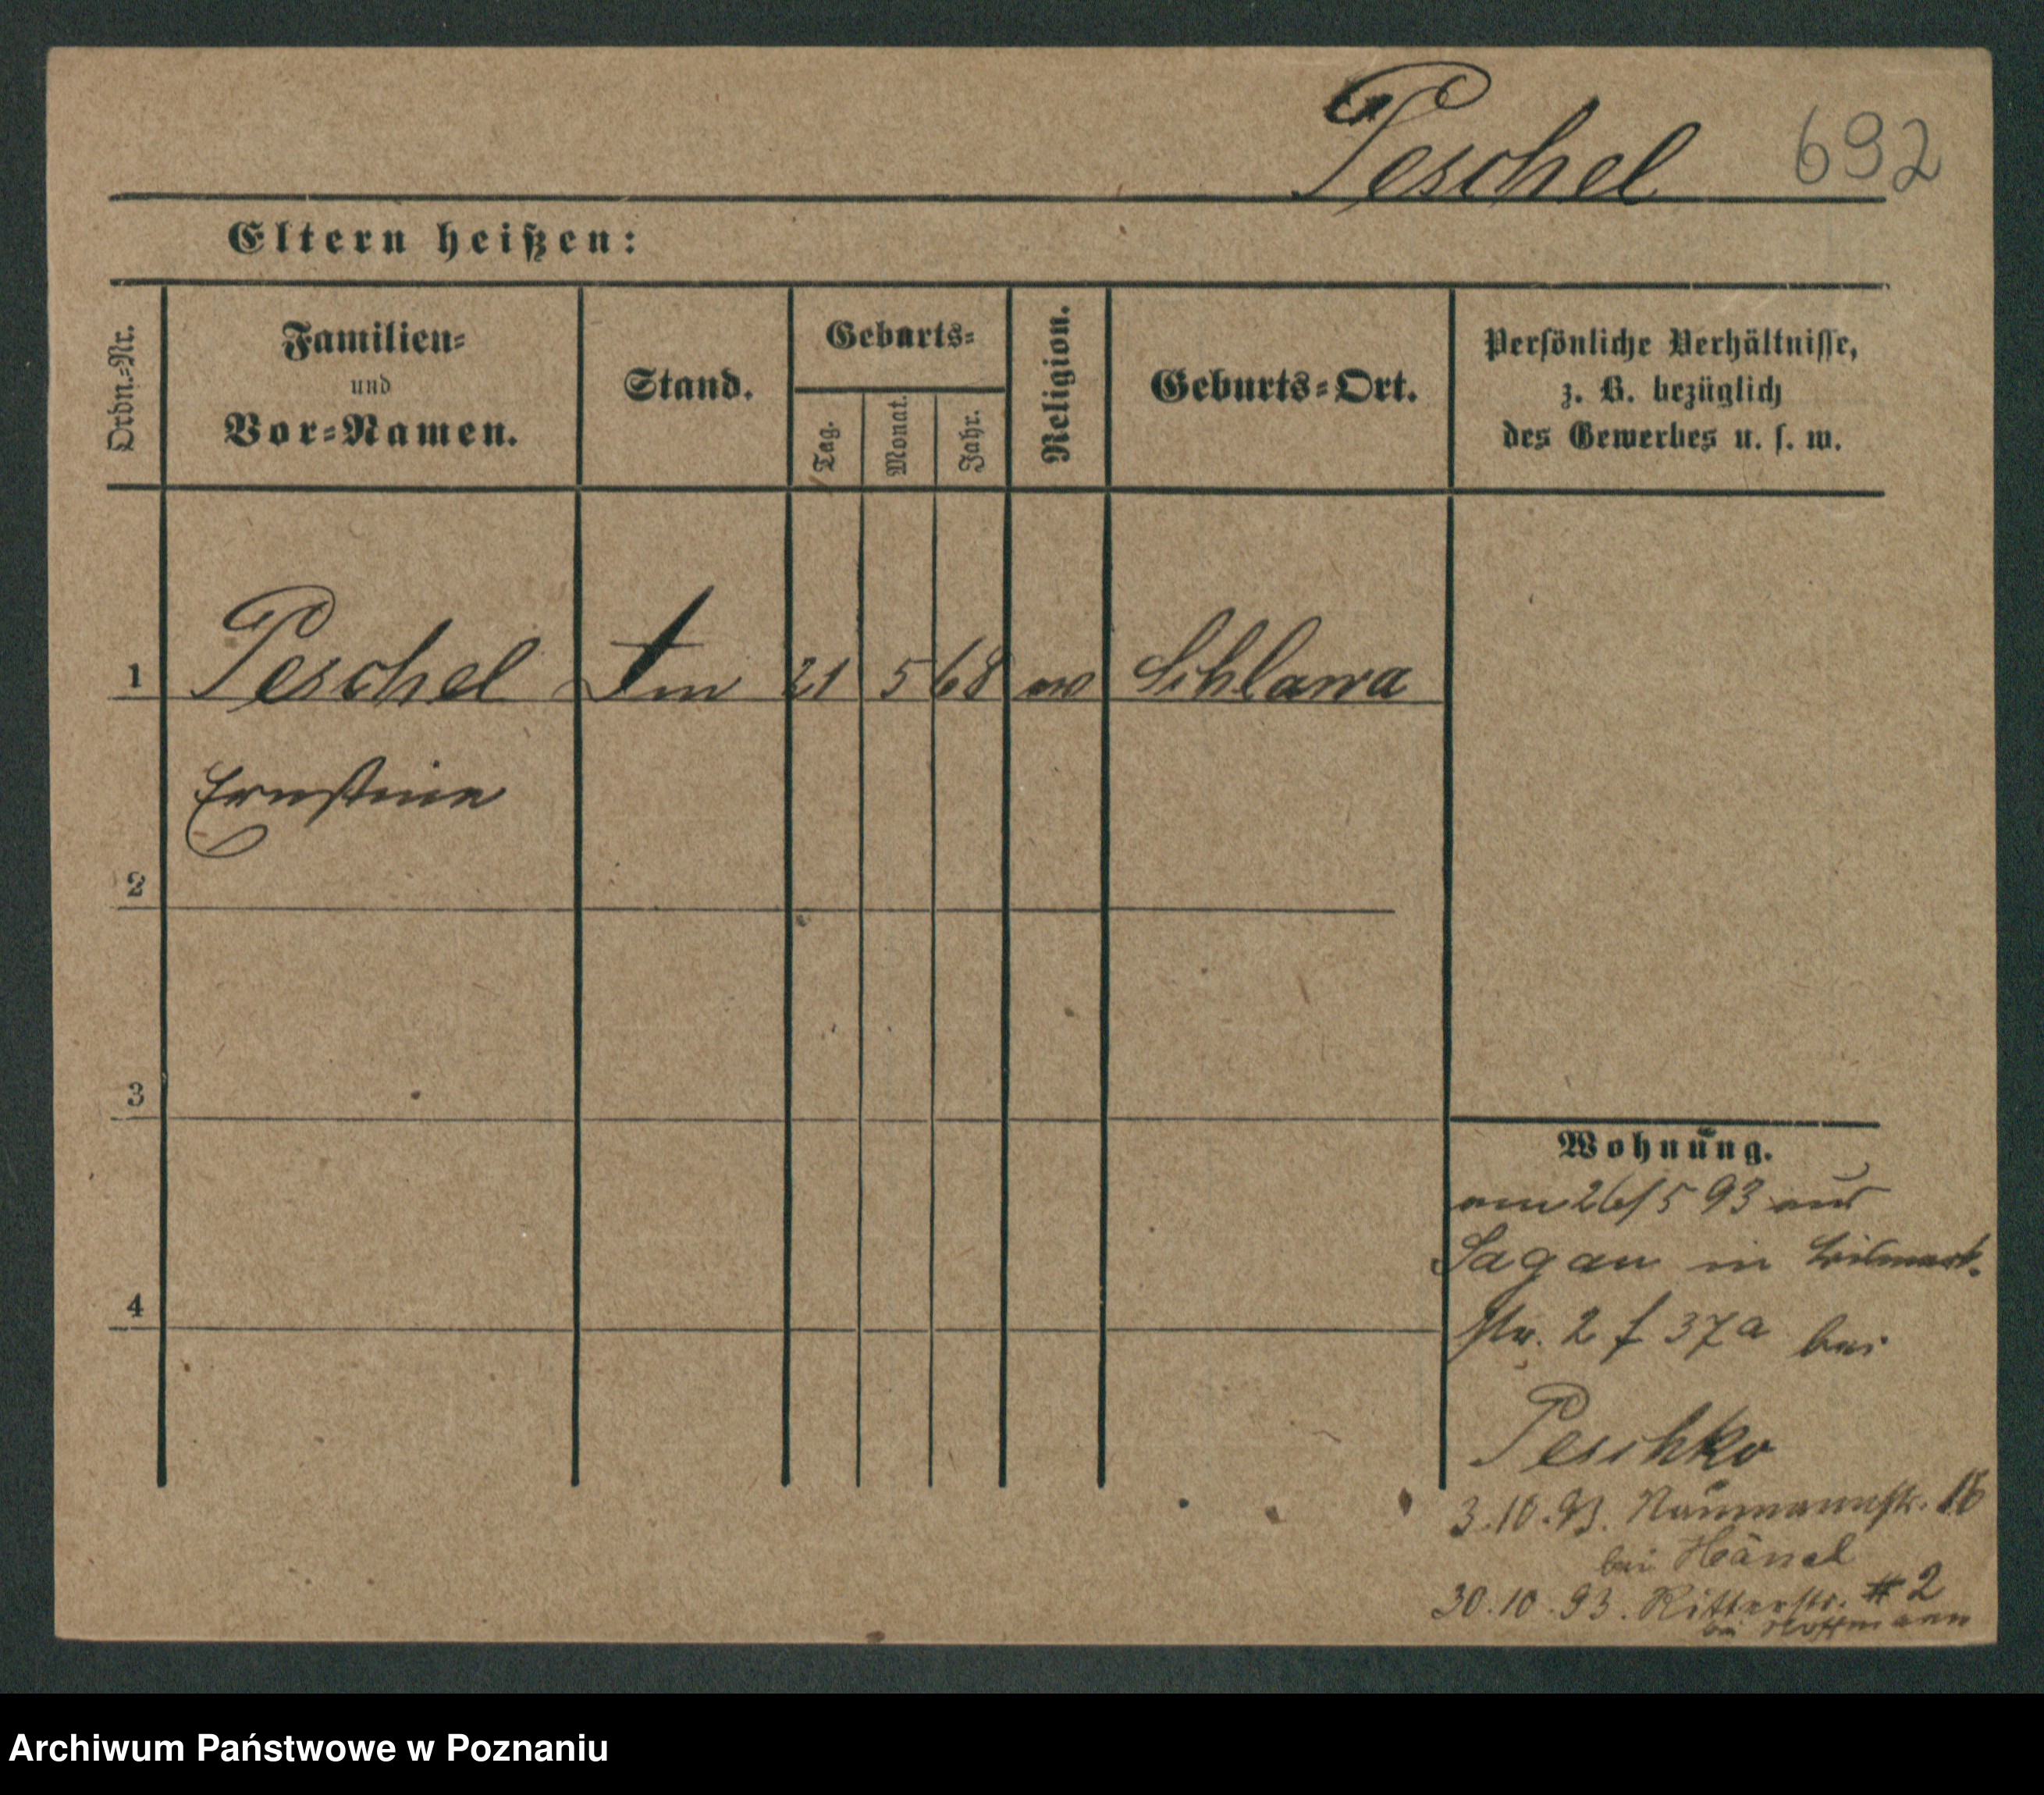 Peschel 692
Eltern heißen:
Ordn.-Nr.
Familien-
und
Vor-Namen.
Stand.
Geburts-
Tag.
Monat.
Jahr.
Religion.
Geburts-Ort.
Persönliche Verhältnisse,
z. B. bezüglich
des Gewerbes u. s. w.
1 Peschel 21 5 68 Schlawa
Ernstine
2
3
4
Wohnung.
am 26/5 93 aus
Sagan in Bismark-
str. 2 f 37a bei
Peschko
3.10.93. Naumannstr. 16
bei Hänsel
30.10.93. Ritterstr. 2
bei Hoffmann
Archiwum Państwowe w Poznaniu